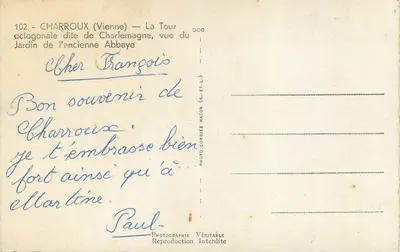 102 - CHARROUX (Vienne) — La Tour
octogonale dite de Charlemagne, vue du
Jardin de l'ancienne Abbaye
Cher François
Bon souvenir de
Charroux.
je t'embrasse bien
fort ainsi qu'à
Martine.
Paul-
PHOTOGRAPHIE VÉRITABLE
Reproduction Interdite
PHOTO COMBIER MACON (S.-ET-L.)